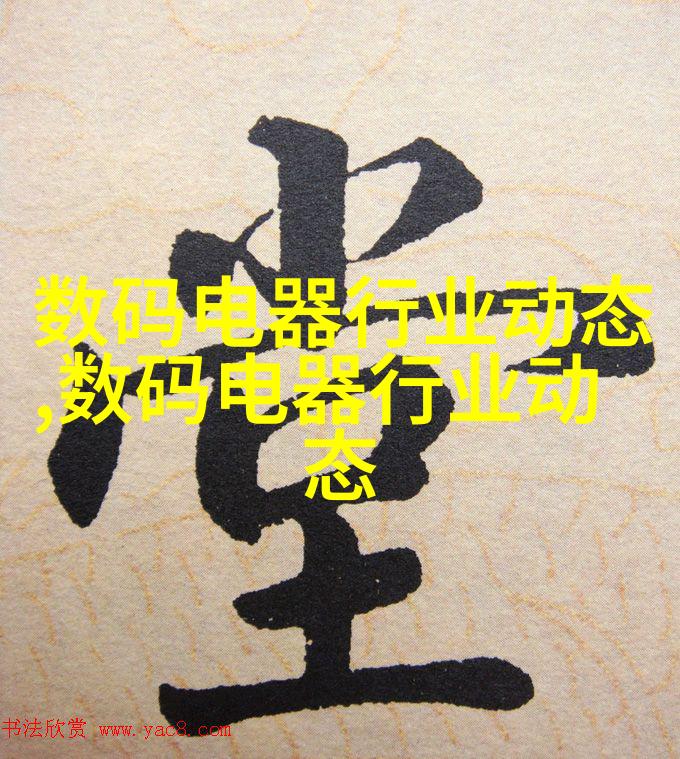 堂
数码电器行业动态
,数码电器行业动
态
书法欣赏 www.yac8.com